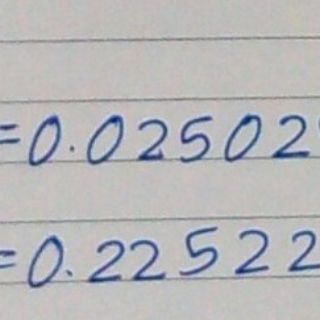 =0.02502
=0.22522